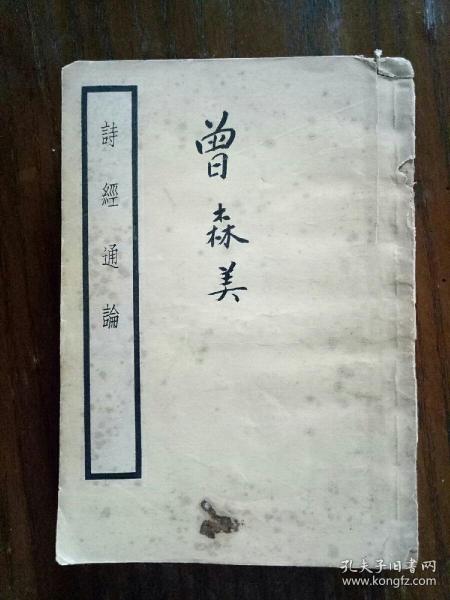 詩經通論
曾森美
孔夫子旧书网
www.kongfz.com